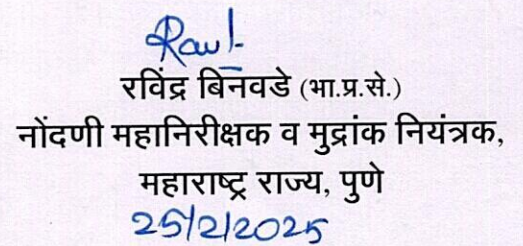 रविंद्र बिनवडे (भा.प्र.से.)
नोंदणी महानिरीक्षक व मुद्रांक नियंत्रक,
महाराष्ट्र राज्य, पुणे
25/2/2025